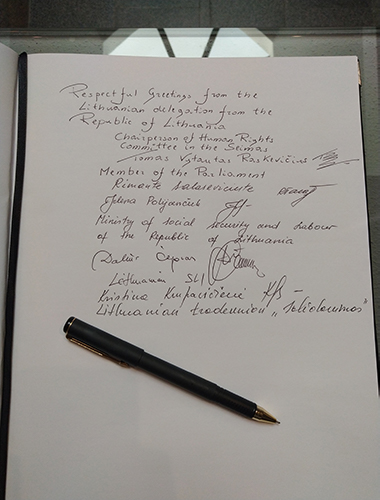 Respectful Greetings from the
Lithuanian delegation from the
Republic of Lithuania
Chairperson of Human Rights
Committee in the Seimas
Tomas Vytautas Raskevičius
Member of the Parliament
Rimantė Salaševičiūtė
Jelena Poljančuk
Ministry of social security and labour
of the Republic of Lithuania
Dalius
Lithuanian
Kristina Krupavičienė
Lithuanian tradeunion „Solidarumas"